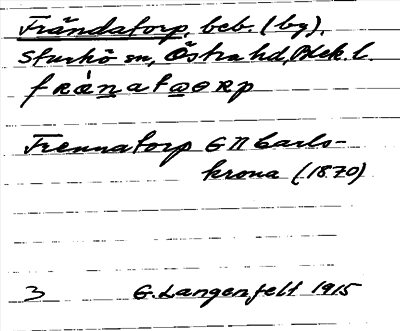 Frändatorp, beb. (by),
Sturkö sn, Östra hd, Blek. l.
Frennatorp GK Carls-
krona (1870)
3 G. Langenfelt 1915